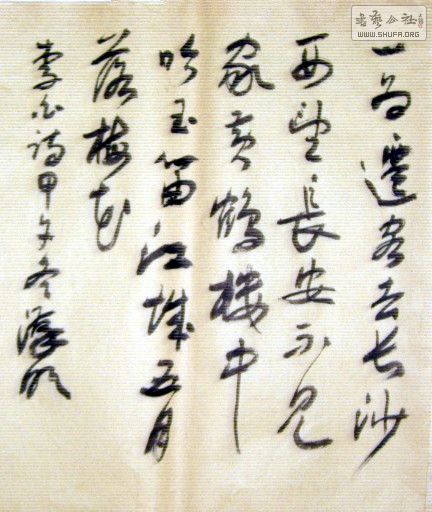 書藝公社
WWW.SHUFA.ORG
一为遷客去长沙
西望長安不见
家黄鹤楼中
吹玉笛江城五月
落梅花
李白诗甲冬